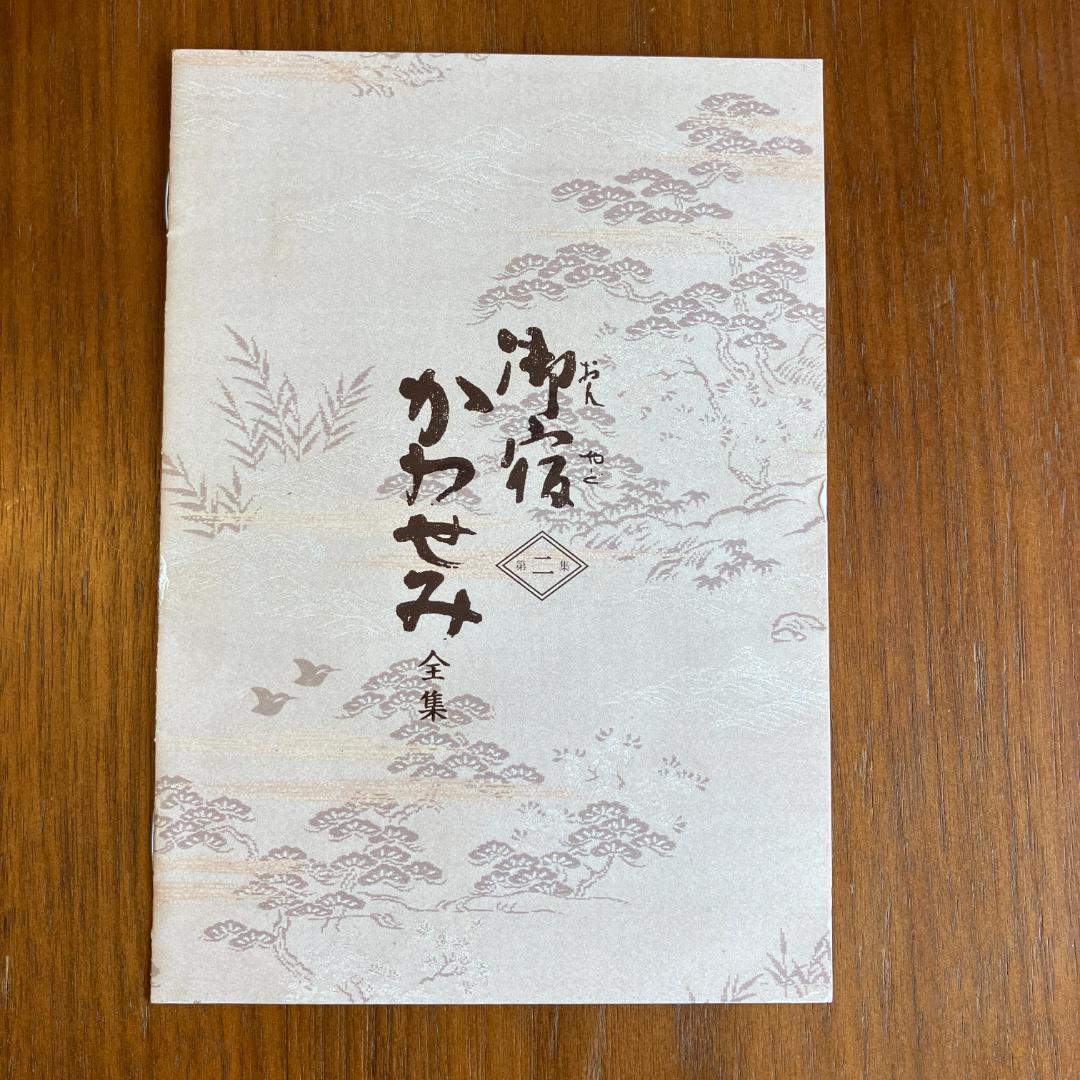 御宿
おんやど
第二集
かわせみ
全集